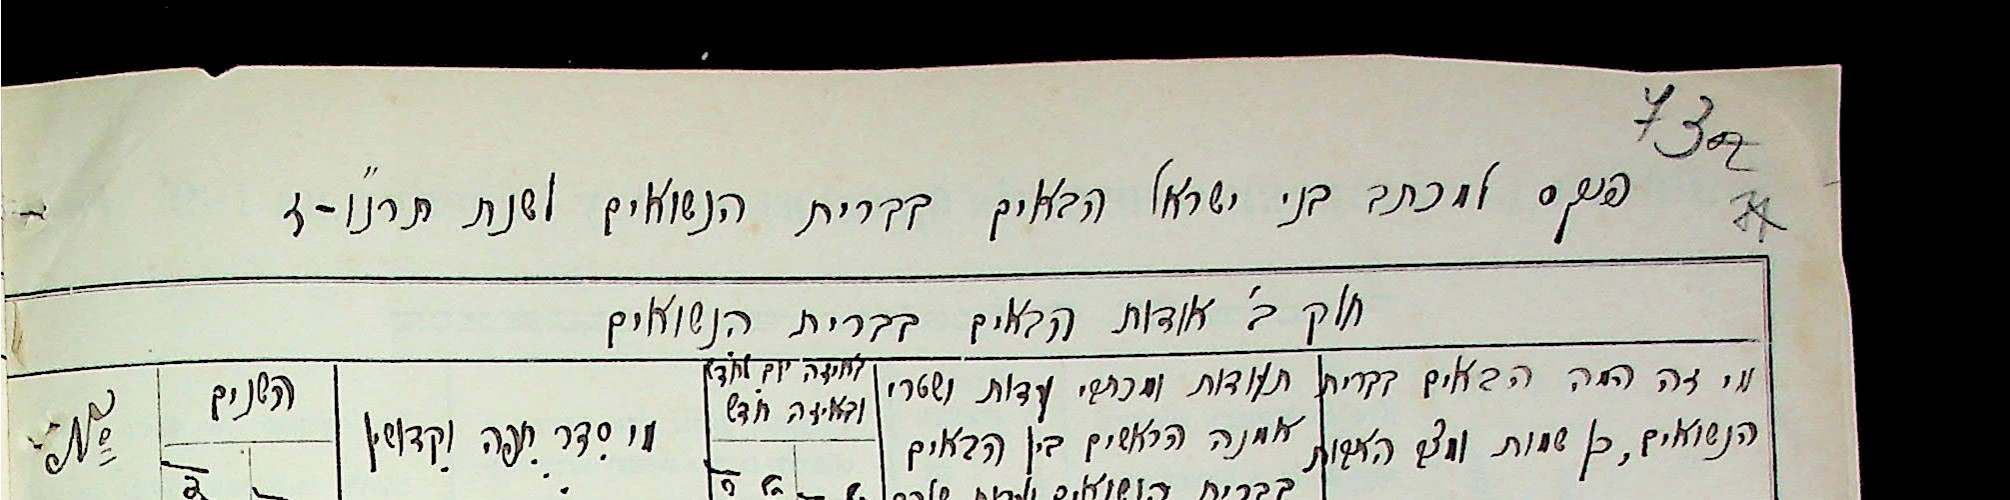 73
פנקס למכתב בני ישראל הבאים בברית הנשואים לשנת תרנ״ו-ז
חוק ב׳ אודות הבאים בברית הנשואים
מי זה המה הבאים בברית
הנשואים, כן שמות ומצב האבות
תעודות ומכתבי עדות ושטרי
אמנה הראשים בין הבאים
בברית הנשואים
באיזה יום לחדש
ובאיזה חדש
מי סדר חפה וקדושין
השנים
№